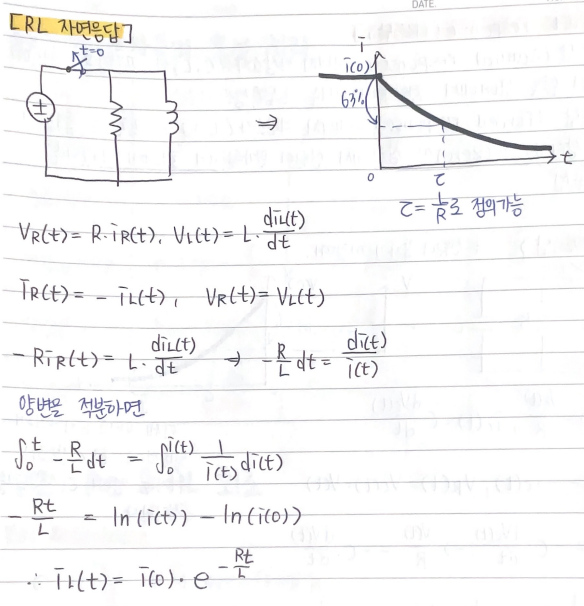 DATE.
[RL 자연응답]
t=0
i
i(0)
63%
t
0
τ
τ = L/R로 정의가능
V_R(t) = R·i_R(t), V_L(t) = L·di_L(t)/dt
i_R(t) = - i_L(t), V_R(t) = V_L(t)
- Ri_R(t) = L·di_L(t)/dt → -R/L dt = di(t)/i(t)
양변을 적분하면
∫₀^t -R/L dt = ∫₀^i(t) 1/i(t) di(t)
- Rt/L = ln(i(t)) - ln(i(0))
∴ i_L(t) = i(0)·e^(-Rt/L)